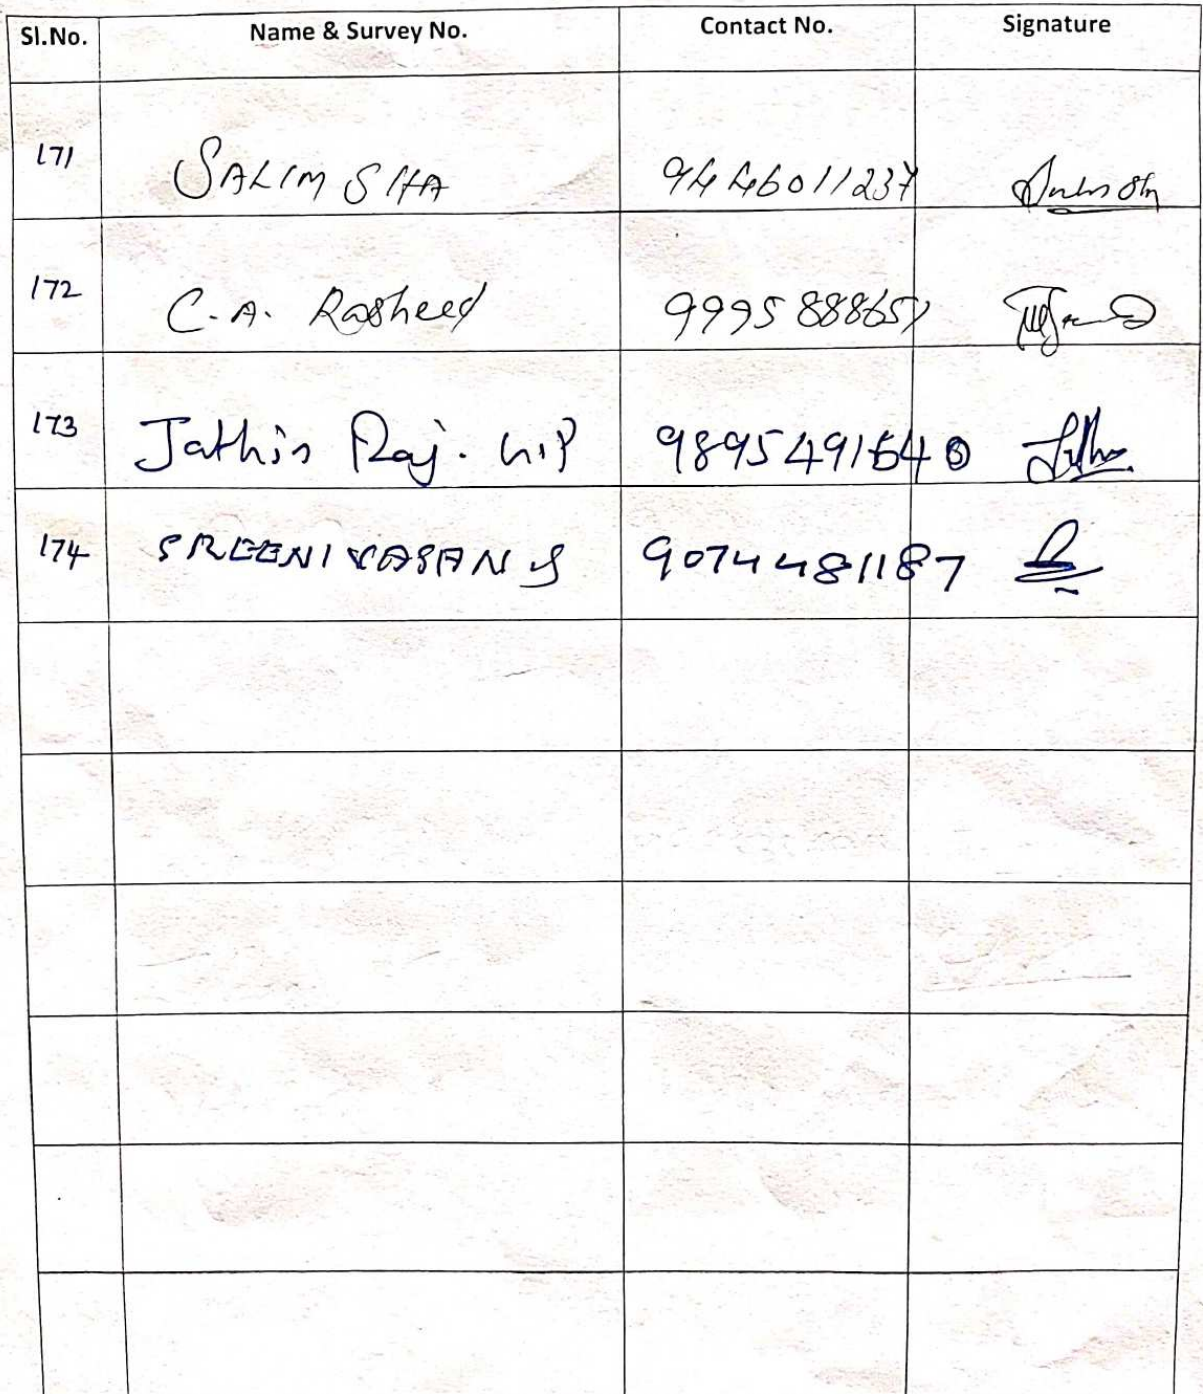 Sl.No. Name & Survey No. Contact No. Signature
171 SALIM SHA 9446011237
172 C.A. Rasheed 9995888657
173 Jathin Raj. 9895491640
174 SREENIVASAN S 9074481187